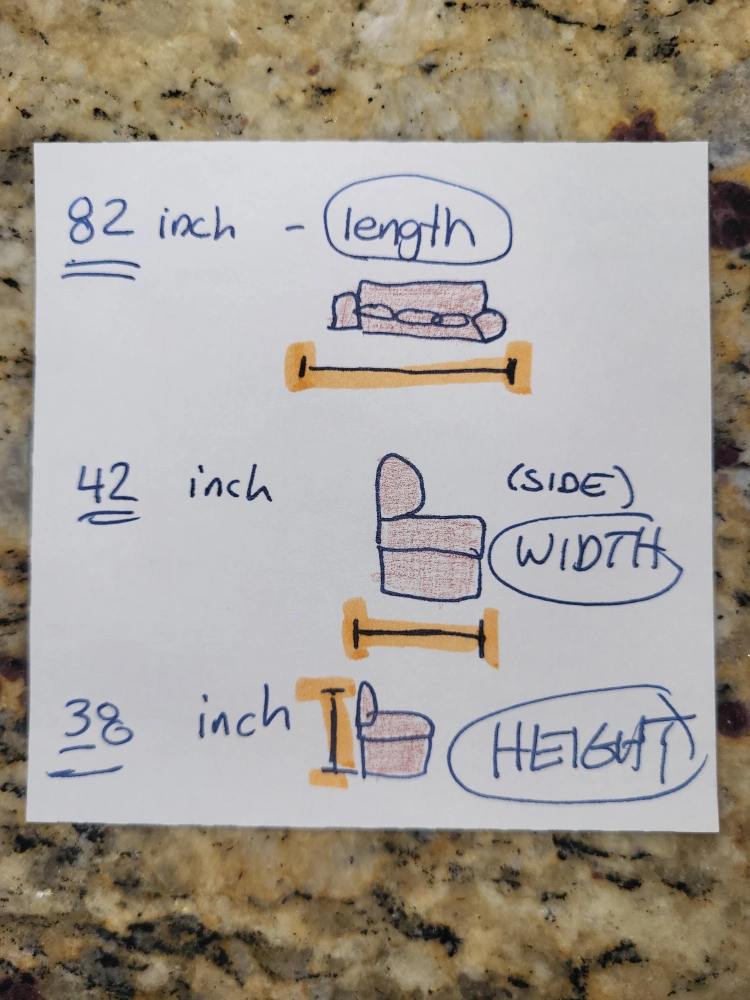 82 inch - length
42 inch (SIDE)
WIDTH
38 inch HEIGHT